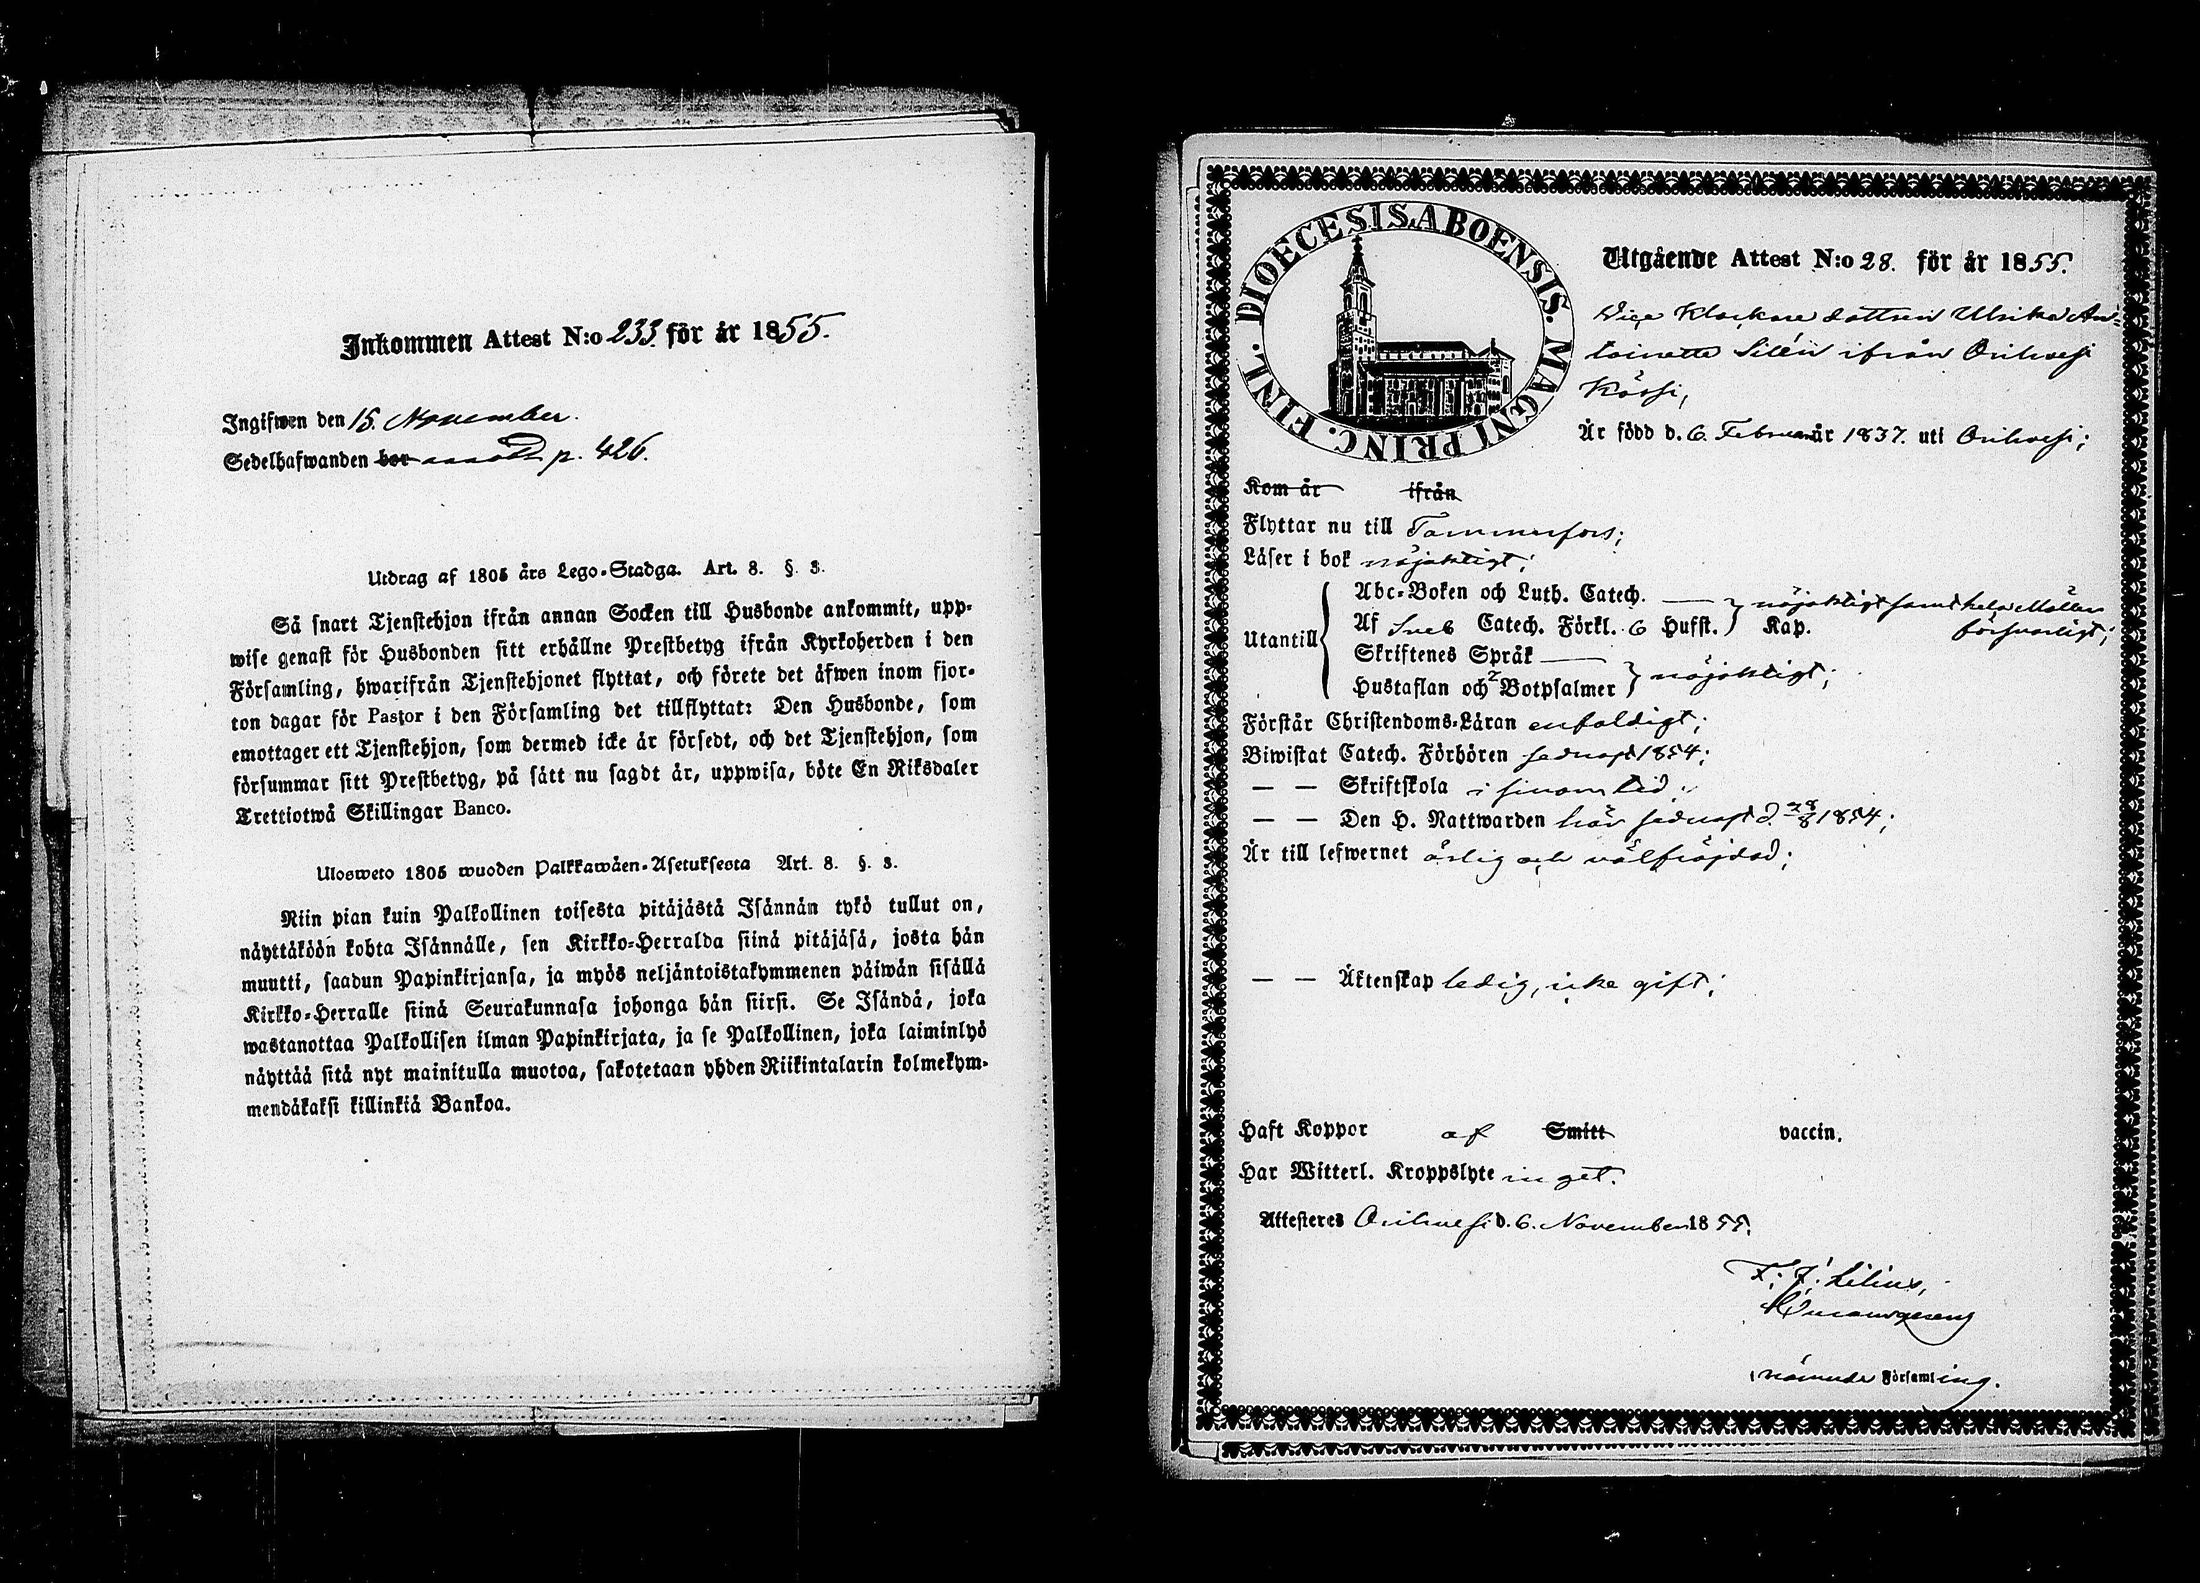 Inkommen Attest N:o 233 för år 1855.
Ingifwen den 15. November.
Sedelhafwanden bor p. 426.
Utdrag af 1805 års Lego-Stadga. Art. 8. §. 3.
Så snart Tjenstehjon ifrån annan Socken till Husbonde ankommit, upp-
wise genast för Husbonden sitt erhållne Prestbetyg ifrån Kyrkoherden i den
Församling, hwarifrån Tjenstehjonet flyttat, och förete det äfwen inom fjor-
ton dagar för Pastor i den Församling det tillflyttat: Den Husbonde, som
emottager ett Tjenstehjon, som dermed icke är försedt, och det Tjenstehjon, som
försummar sitt Prestbetyg, på sätt nu sagdt är, uppwisa, böte En Riksdaler
Trettiotwå Skillingar Banco.
Ulosweto 1805 wuoden Palkkawäen-Asetuksesta Art. 8. §. 3.
Niin pian kuin Palkollinen toisesta pitäjästä Isännän tykö tullut on,
näyttäköön kohta Isännälle, sen Kirkko-Herralda siinä pitäjäsä, josta hän
muutti, saadun Papinkirjansa, ja myös neljäntoistakymmenen päiwän sisällä
Kirkko-Herralle siinä Seurakunnasa johonga hän siirsi. Se Isändä, joka
wastanottaa Palkollisen ilman Papinkirjata, ja se Palkollinen, joka laiminlyö
näyttää sitä nyt mainitulla muotoa, sakotetaan yhden Riikintalarin kolmekym-
mendäkaksi killinkiä Bankoa.
DIOECESIS ABOENSIS. MAGNI PRINC. FINL.
Utgående Attest N:o 28. för år 1855.
Vice Klockare dottren Ulrika An-
toinette Silén ifrån Orihvesi
Kässi,
Är född d. 6. Februar år 1837. uti Orihvesi;
Kom år ifrån
Flyttar nu till Tammerfors;
Läser i bok nöjaktigt;
Utantill
Abc-Boken och Luth. Catech. nöjaktigt samt hela Möllers
Af Sveb Catech. Förkl. 6 Hufst. Kap. försvarligt;
Skriftenes Språk
Hustaflan och 2 Botpsalmer nöjaktigt;
Förstår Christendoms-Läran enfaldigt;
Biwistat Catech. Förhören sednast 1854;
— — Skriftskola i sinom tid;
— — Den H. Nattwarden här sednast d. 28/8 1854;
Är till lefwernet ärlig och välfräjdad;
— — Äktenskap ledig, icke gift;
Haft Koppor af Smitt vaccin.
Har Witterl. Kroppslyte inget.
Attesteres Orihvesi d. 6. November 1855.
F. J. Lilius,
i nämnde Församling.